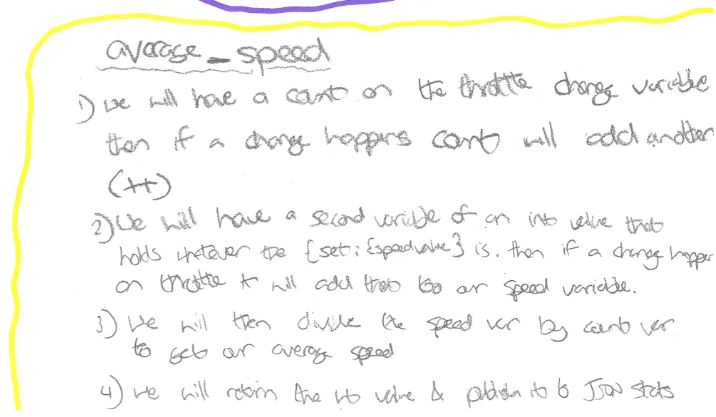 average_speed
1) we will have a count on the throttle change variable
then if a change happens count will add another
(++)
2) We will have a second variable of an int value that
holds whatever the {set : {speedvalue} is. then if a change happen
on throttle it will add that to our speed variable.
3) We will then divide the speed var by count var
to get our average speed
4) we will return the int value & publish it to JSON stats